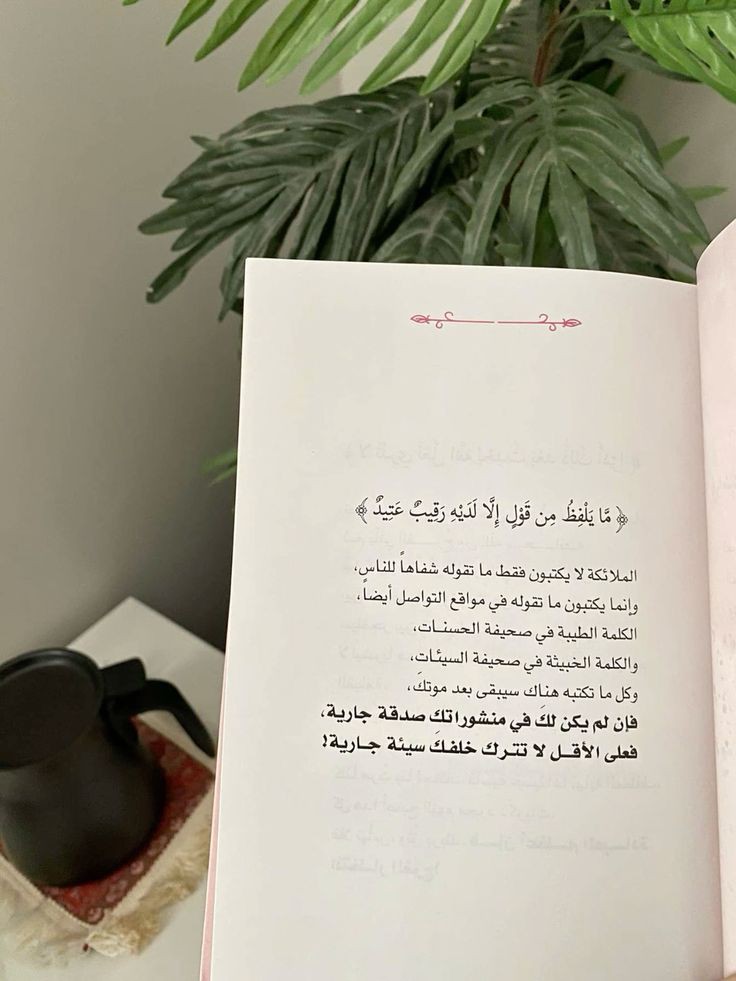 ﴿ مَّا يَلْفِظُ مِن قَوْلٍ إِلَّا لَدَيْهِ رَقِيبٌ عَتِيدٌ ﴾
الملائكة لا يكتبون فقط ما تقوله شفاهاً للناس،
وإنما يكتبون ما تقوله في مواقع التواصل أيضاً،
الكلمة الطيبة في صحيفة الحسنـات،
والكلمة الخبيثة في صحيفة السيئـات،
وكل ما تكتبه هناك سيبقى بعد موتكَ،
فإن لم يكن لكَ في منشوراتك صدقة جارية،
فعلى الأقــل لا تتـرك خلفكَ سيئة جـارية!